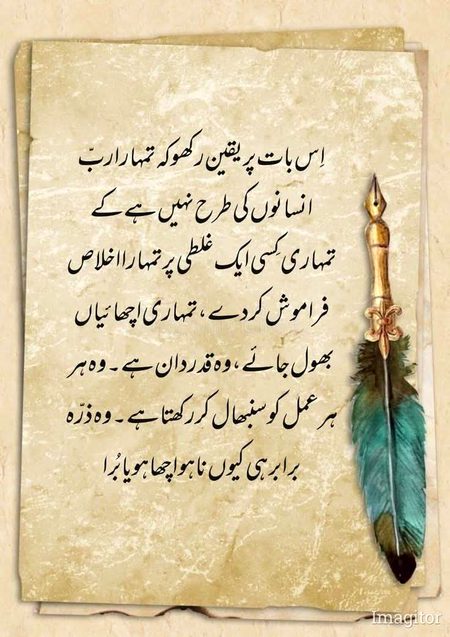 اِس بات پر یقین رکھو کہ تمہارا ربّ
انسانوں کی طرح نہیں ہے کے
تمہاری کِسی ایک غلطی پر تمہارا اخلاص
فراموش کر دے، تمہاری اچھائیاں
بھول جائے، وہ قدردان ہے ۔ وہ ہر
ہر عمل کو سنبھال کر رکھتا ہے ۔ وہ ذرّہ
برابر ہی کیوں نا ہو اچھا ہو یا بُرا
Imagitor